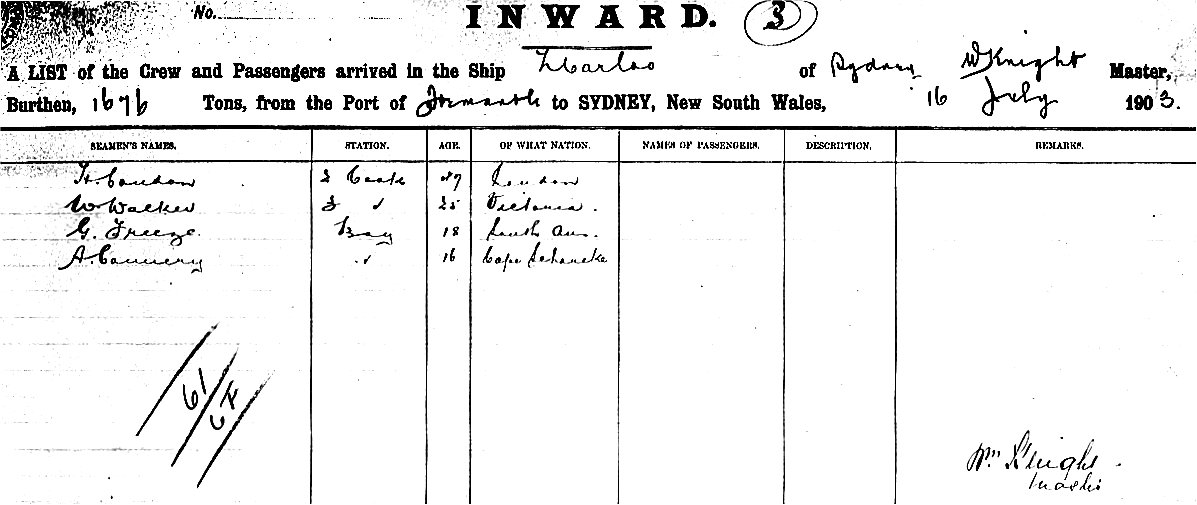 No.
INWARD. 3
A LIST of the Crew and Passengers arrived in the Ship of Sydney W Knight Master,
Burthen, 1676 Tons, from the Port of Fremantle to SYDNEY, New South Wales, 16 July 1903.
SEAMEN'S NAMES. STATION. AGE. OF WHAT NATION. NAMES OF PASSENGERS. DESCRIPTION. REMARKS.
2 Cook London
W. Walker 3 " 25 Victoria.
G. Freeze. Boy 18 South Aus.
A. " 16 Cape
61
Wm Knight
Master